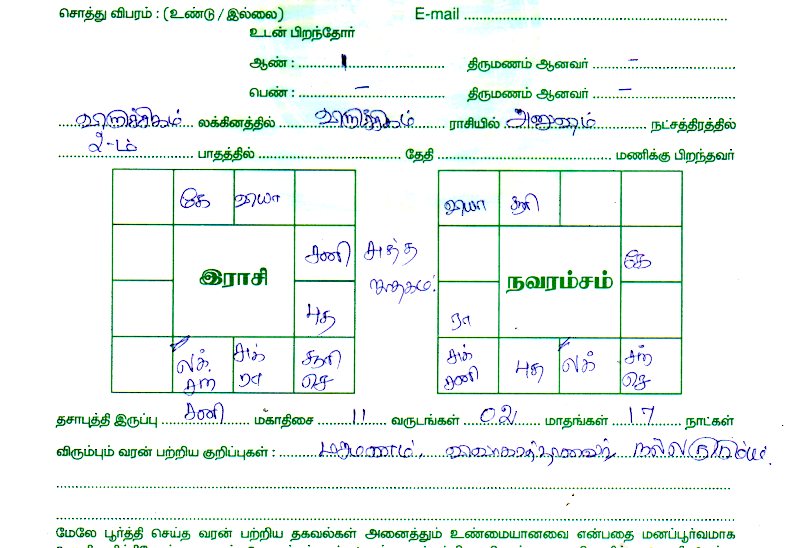 சொத்து விபரம் : (உண்டு / இல்லை) E-mail
உடன் பிறந்தோர்
ஆண் : 1 திருமணம் ஆனவர் –
பெண் : – திருமணம் ஆனவர் –
விருச்சிகம் லக்கினத்தில் விருச்சிகம் ராசியில் அனுஷம் நட்சத்திரத்தில்
2-ம் பாதத்தில் தேதி மணிக்கு பிறந்தவர்
கே வியா வியா சூரி
சனி சுத்த கே
இராசி ஜாதகம். நவரம்சம்
புத ரா
லக் சுக் சூரி சுக் புத லக் சந்
சந் ரா செ சனி செ
தசாபுத்தி இருப்பு சனி மகாதிசை 11 வருடங்கள் 02 மாதங்கள் 17 நாட்கள்
விரும்பும் வரன் பற்றிய குறிப்புகள் : மறுமணம், நல்ல
மேலே பூர்த்தி செய்த வரன் பற்றிய தகவல்கள் அனைத்தும் உண்மையானவை என்பதை மனப்பூர்வமாக